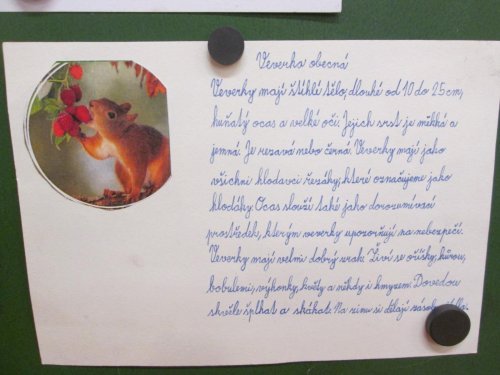 Veverka obecná
Veverky mají štíhlé tělo, dlouhé od 10 do 25cm,
huňatý ocas a velké oči. Jejich srst je měkká a
jemná. Je rezavá nebo černá. Veverky mají jako
všichni hlodavci řezáky, které označujeme jako
hlodáky. Ocas slouží také jako dorozumívací
prostředek, kterým veverky upozorňují na nebezpečí.
Veverky mají velmi dobrý zrak. Živí se oříšky, kůrou,
bobulemi, výhonky, květy a někdy i hmyzem. Dovedou
skvěle šplhat a skákat. Na zimu si dělají zásoby